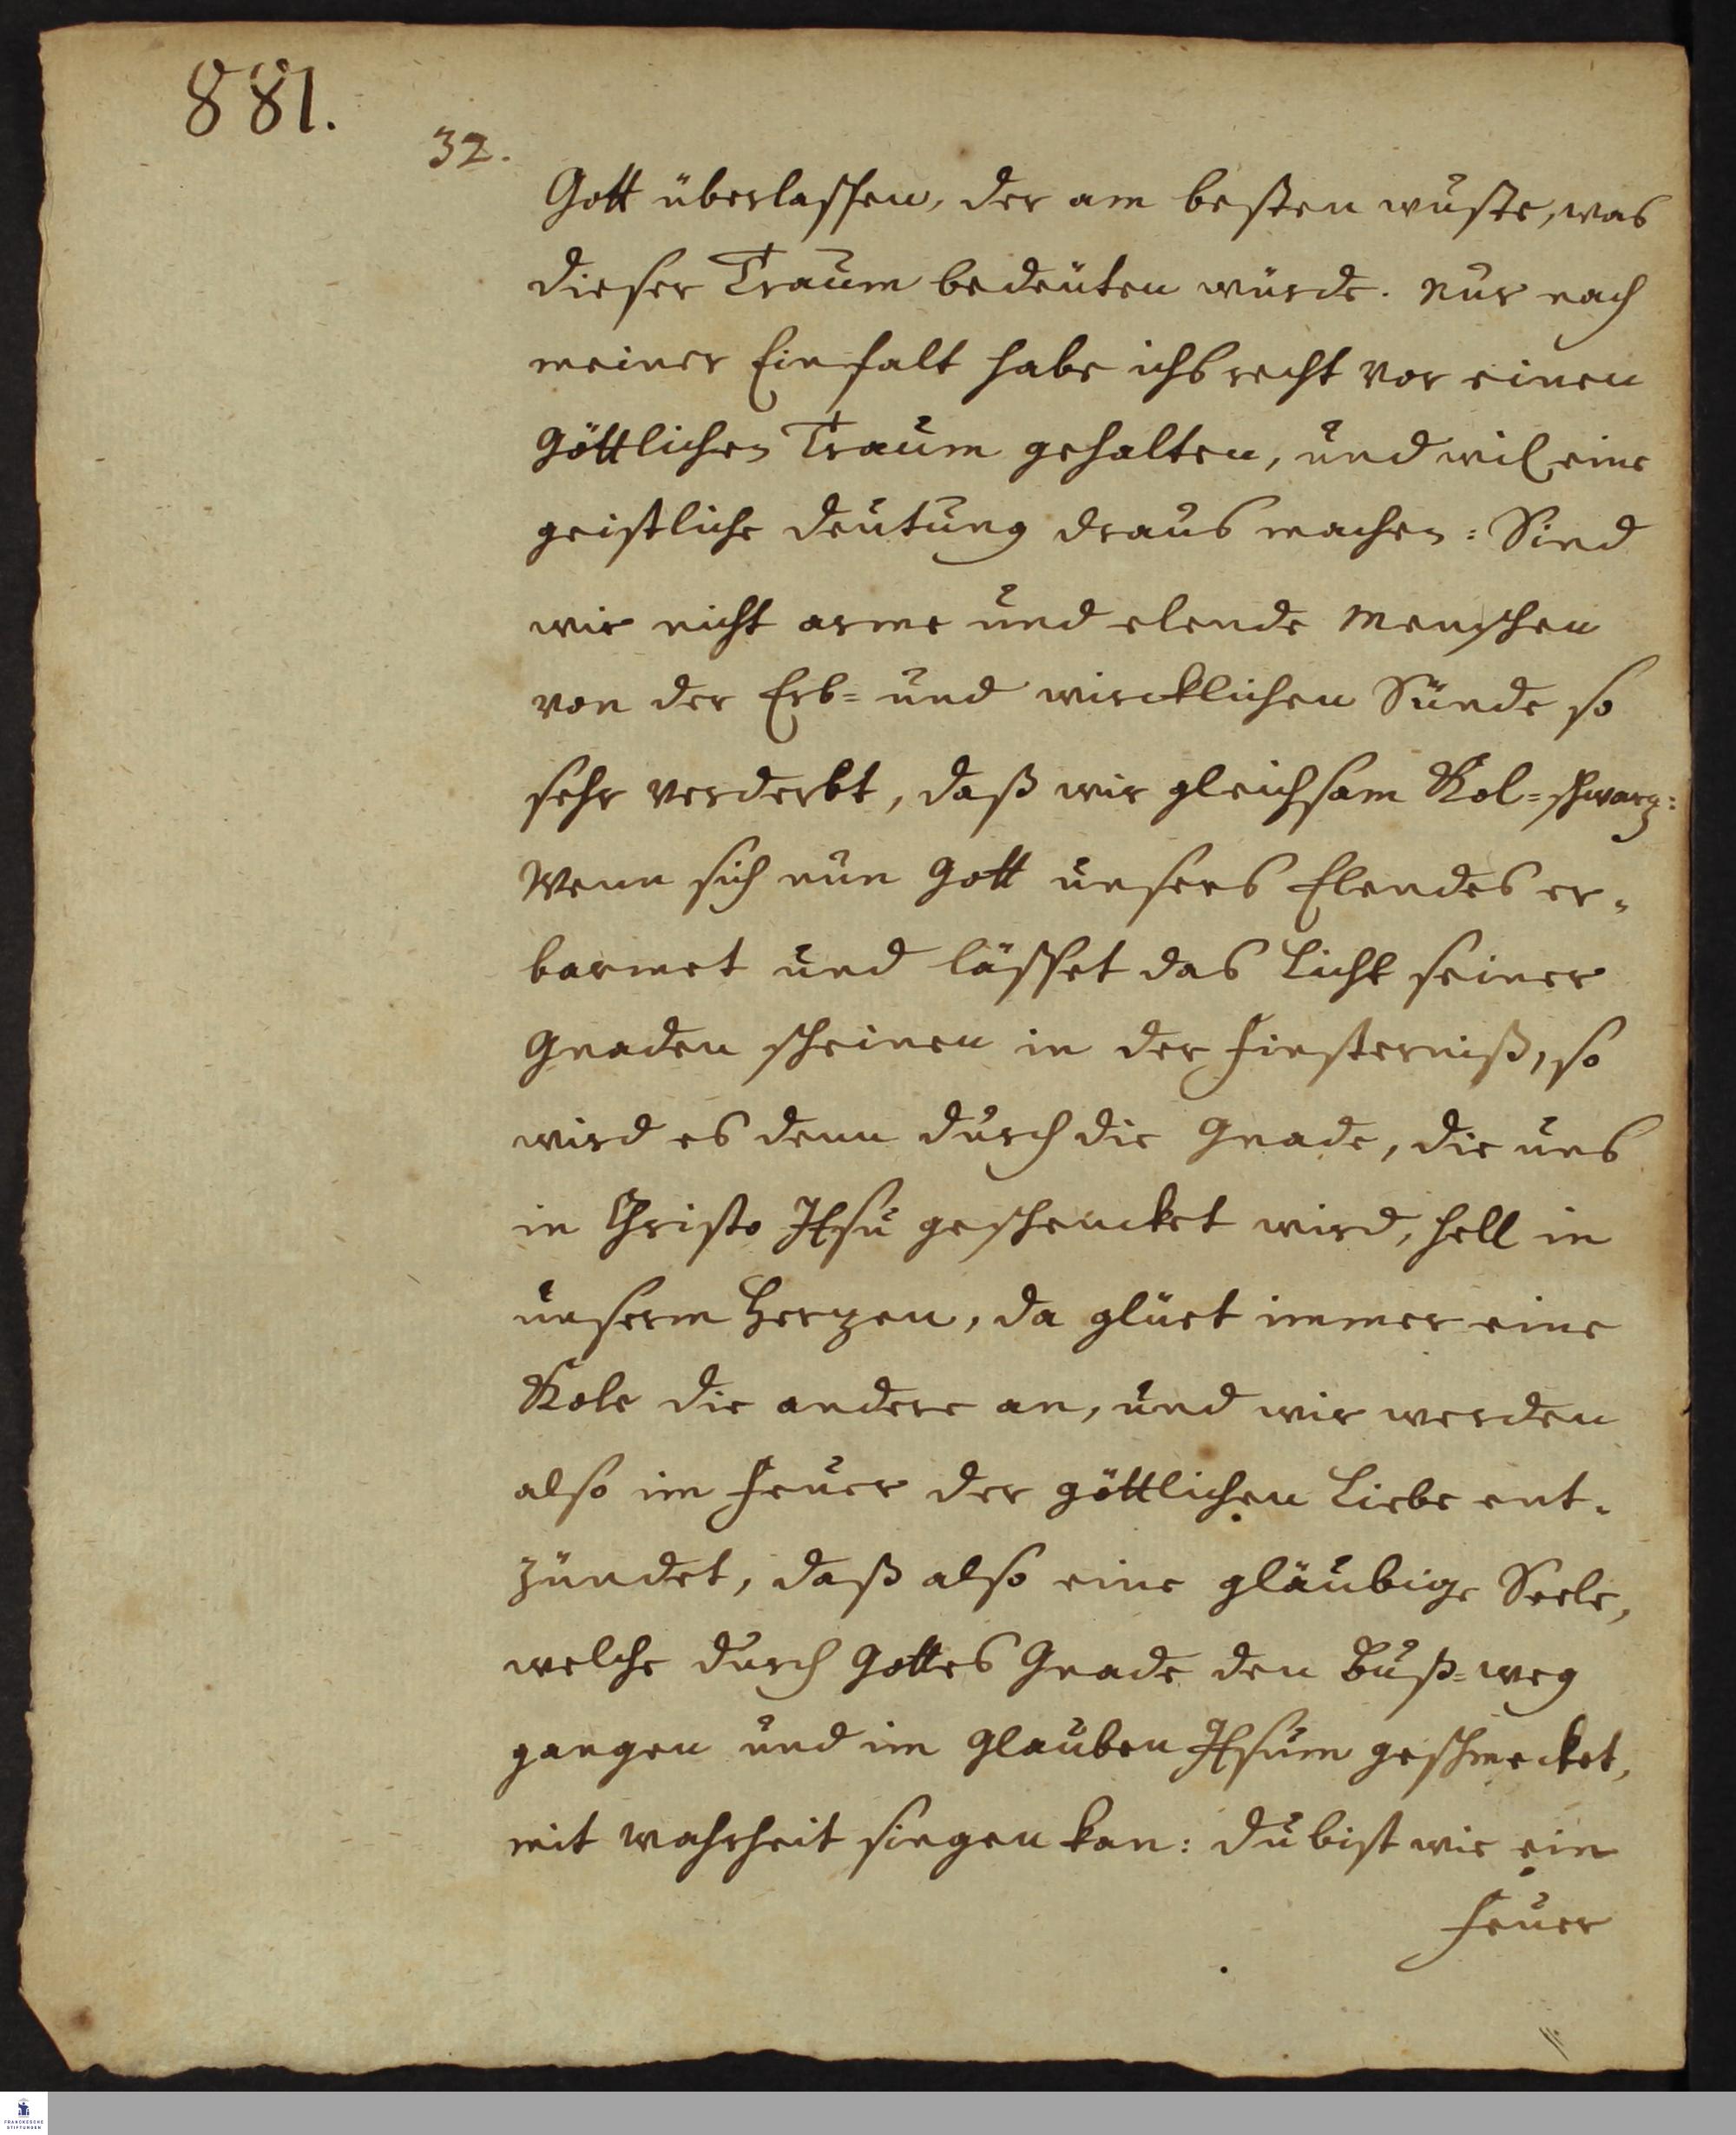 881.
32.
Gott überlassen, der am besten wuste, was
dieser Traum bedeuten würde. Nur nach
meiner Einfalt habe ichs recht vor einen
Göttlichen Traum gehalten, und wil eine
geistliche deutung draus machen: Sind
wir nicht arme und elende Menschen
von der Erb- und wircklichen Sünde so
sehr verderbt, daß wir gleichsam Kol-schwarz:
Wenn sich nun Gott unsers Elendes er-
barmet und lässet das Licht seiner
Gnaden scheinen in der Finsterniß, so
wird es denn durch die Gnade, die uns
in Christo JEsu geschencket wird, hell in
unserm Herzen, da glüet immer eine
Kole die andere an, und wir werden
also im Feuer der göttlichen Liebe ent-
zündet, daß also eine gläubige Seele,
welche durch Gottes Gnade den Buß-weg
gangen und im Glauben JEsum geschmecket,
mit Wahrheit singen kan: du bist wie ein
Feuer
FRANCKESCHE
STIFTUNGEN